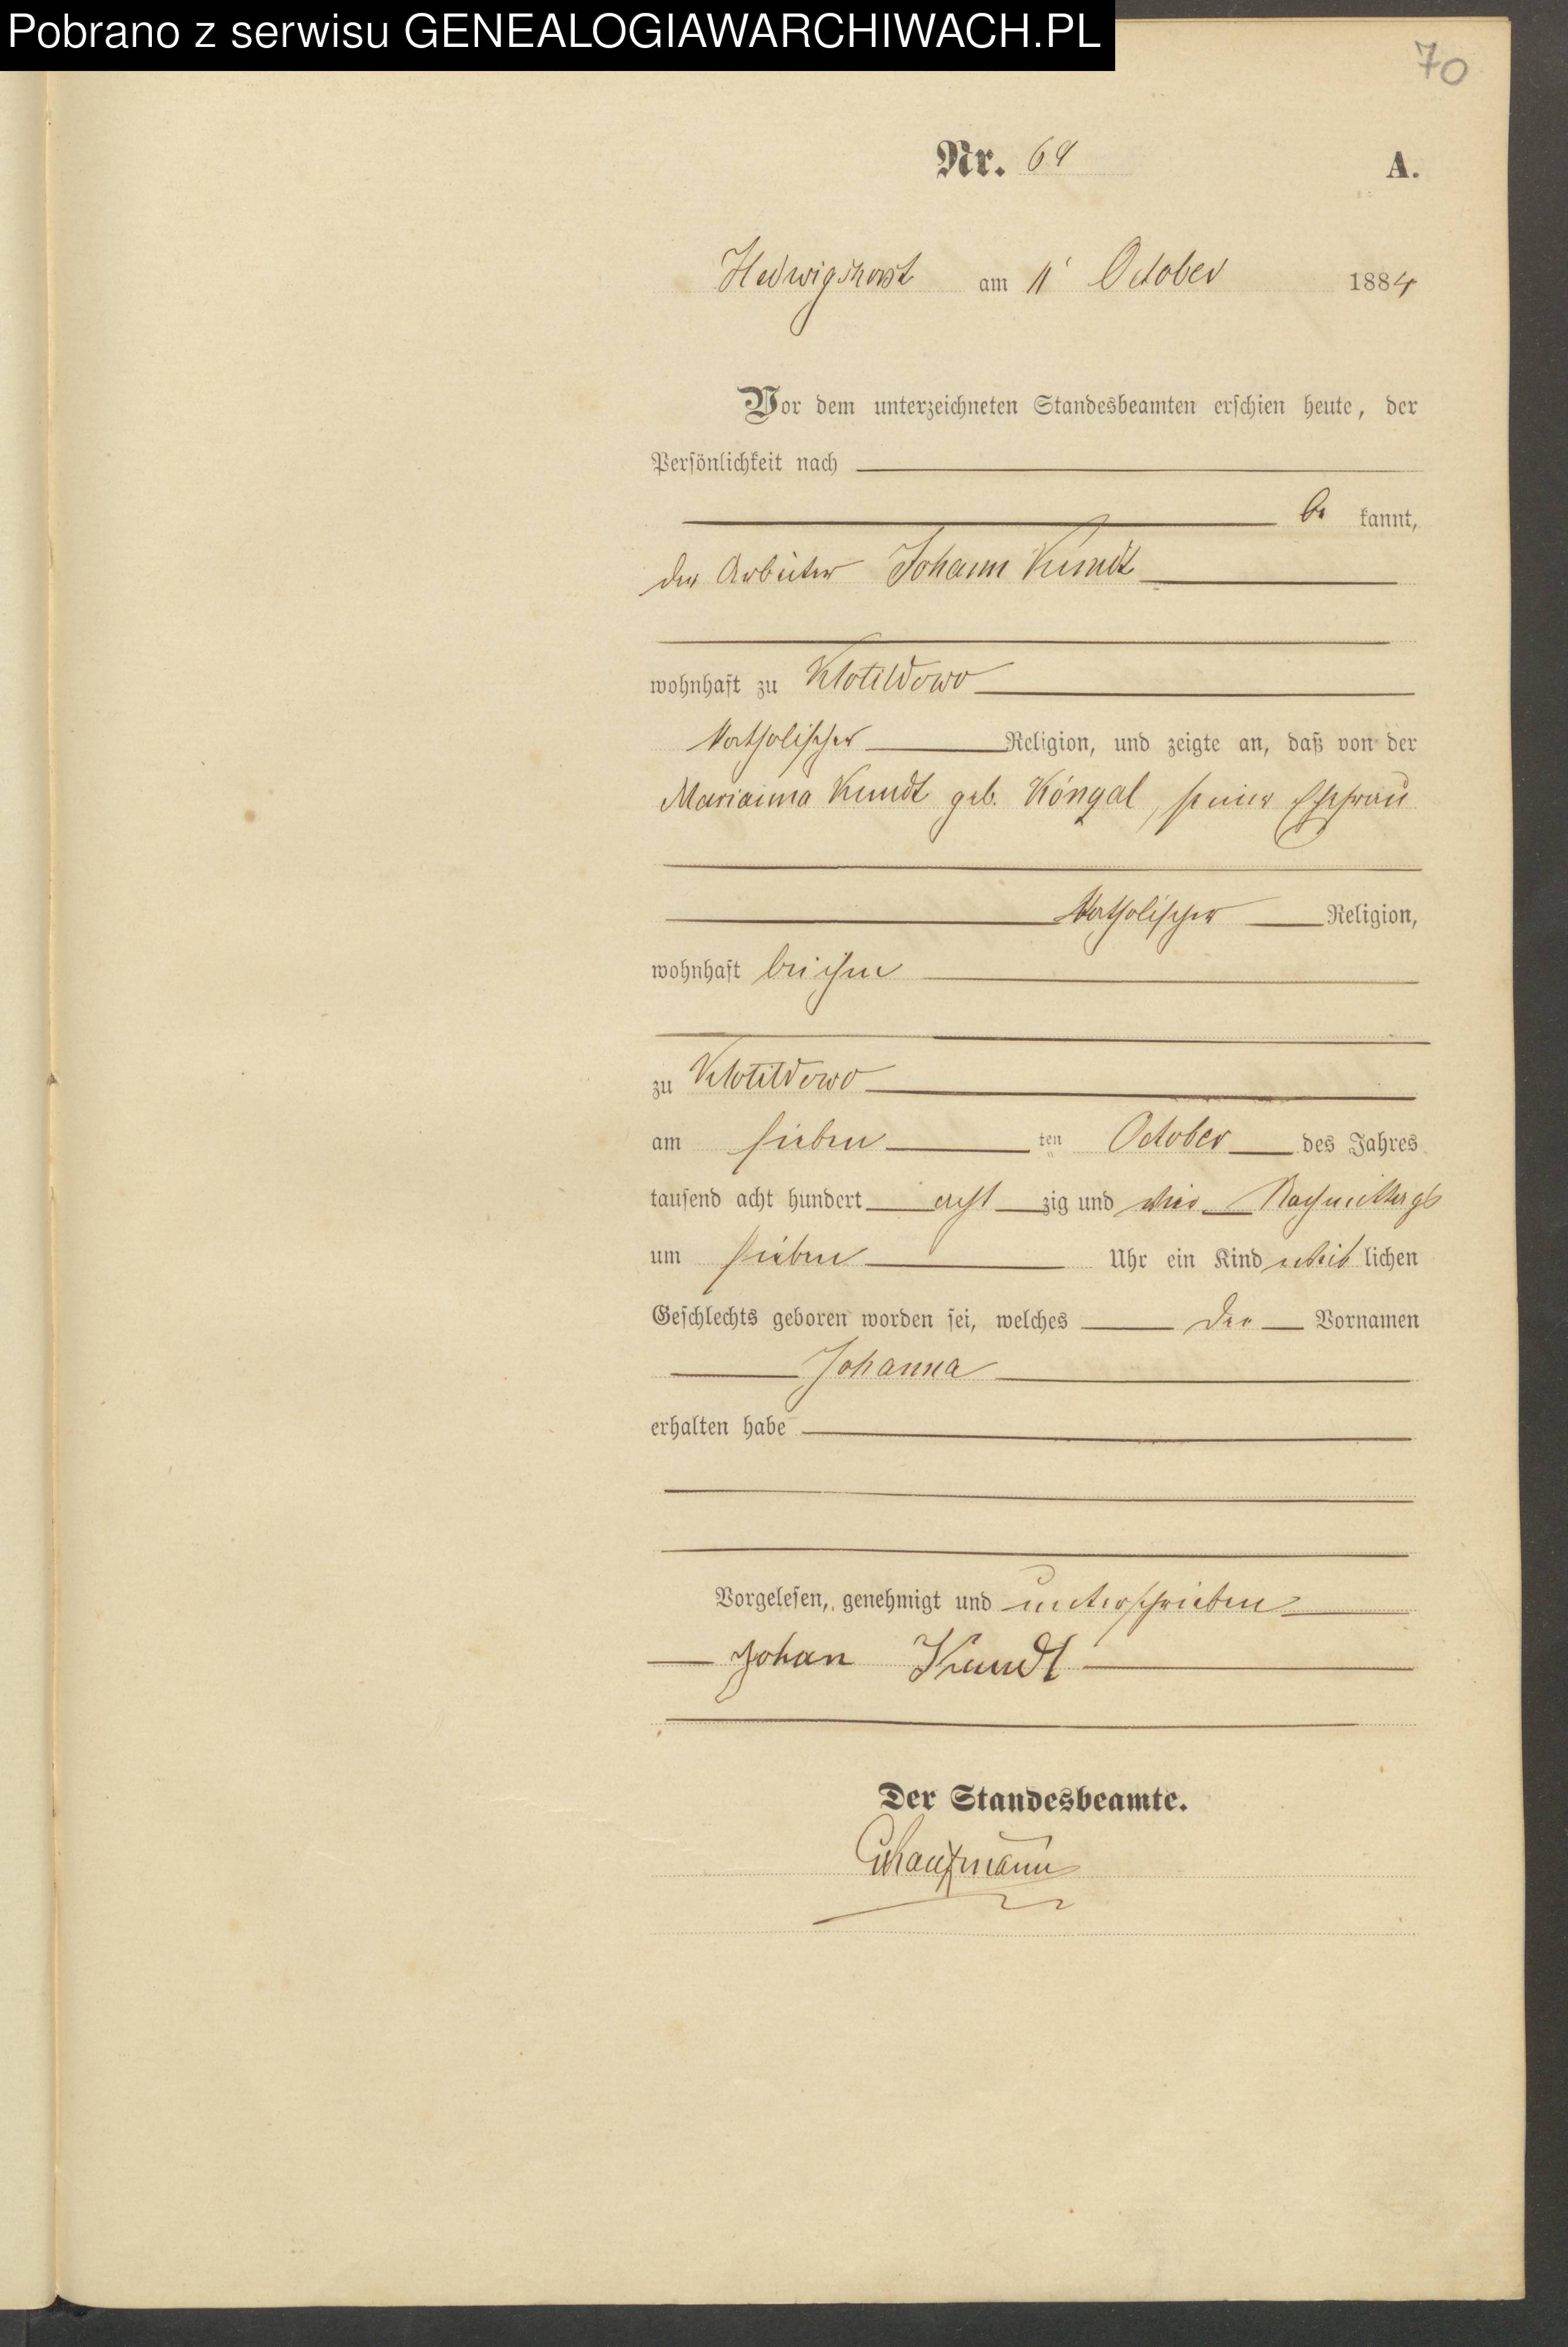 Pobrano z serwisu GENEALOGIAWARCHIWACH.PL
70
Nr. 69 A.
Hedwigshorst am 11' October 1884
Vor dem unterzeichneten Standesbeamten erschien heute, der
Persönlichkeit nach
be kannt,
der Arbeiter Johann Kundt
wohnhaft zu Klotildowo
katholischer Religion, und zeigte an, daß von der
Marianna Kundt geb. Kóngal, seiner Ehefrau
katholischer Religion,
wohnhaft bei ihm
zu Klotildowo
am sieben ten October des Jahres
tausend acht hundert acht zig und vier Nachmittags
um sieben Uhr ein Kind weib lichen
Geschlechts geboren worden sei, welches den Vornamen
Johanna
erhalten habe
Vorgelesen, genehmigt und unterschrieben
Johan Kundt
Der Standesbeamte.